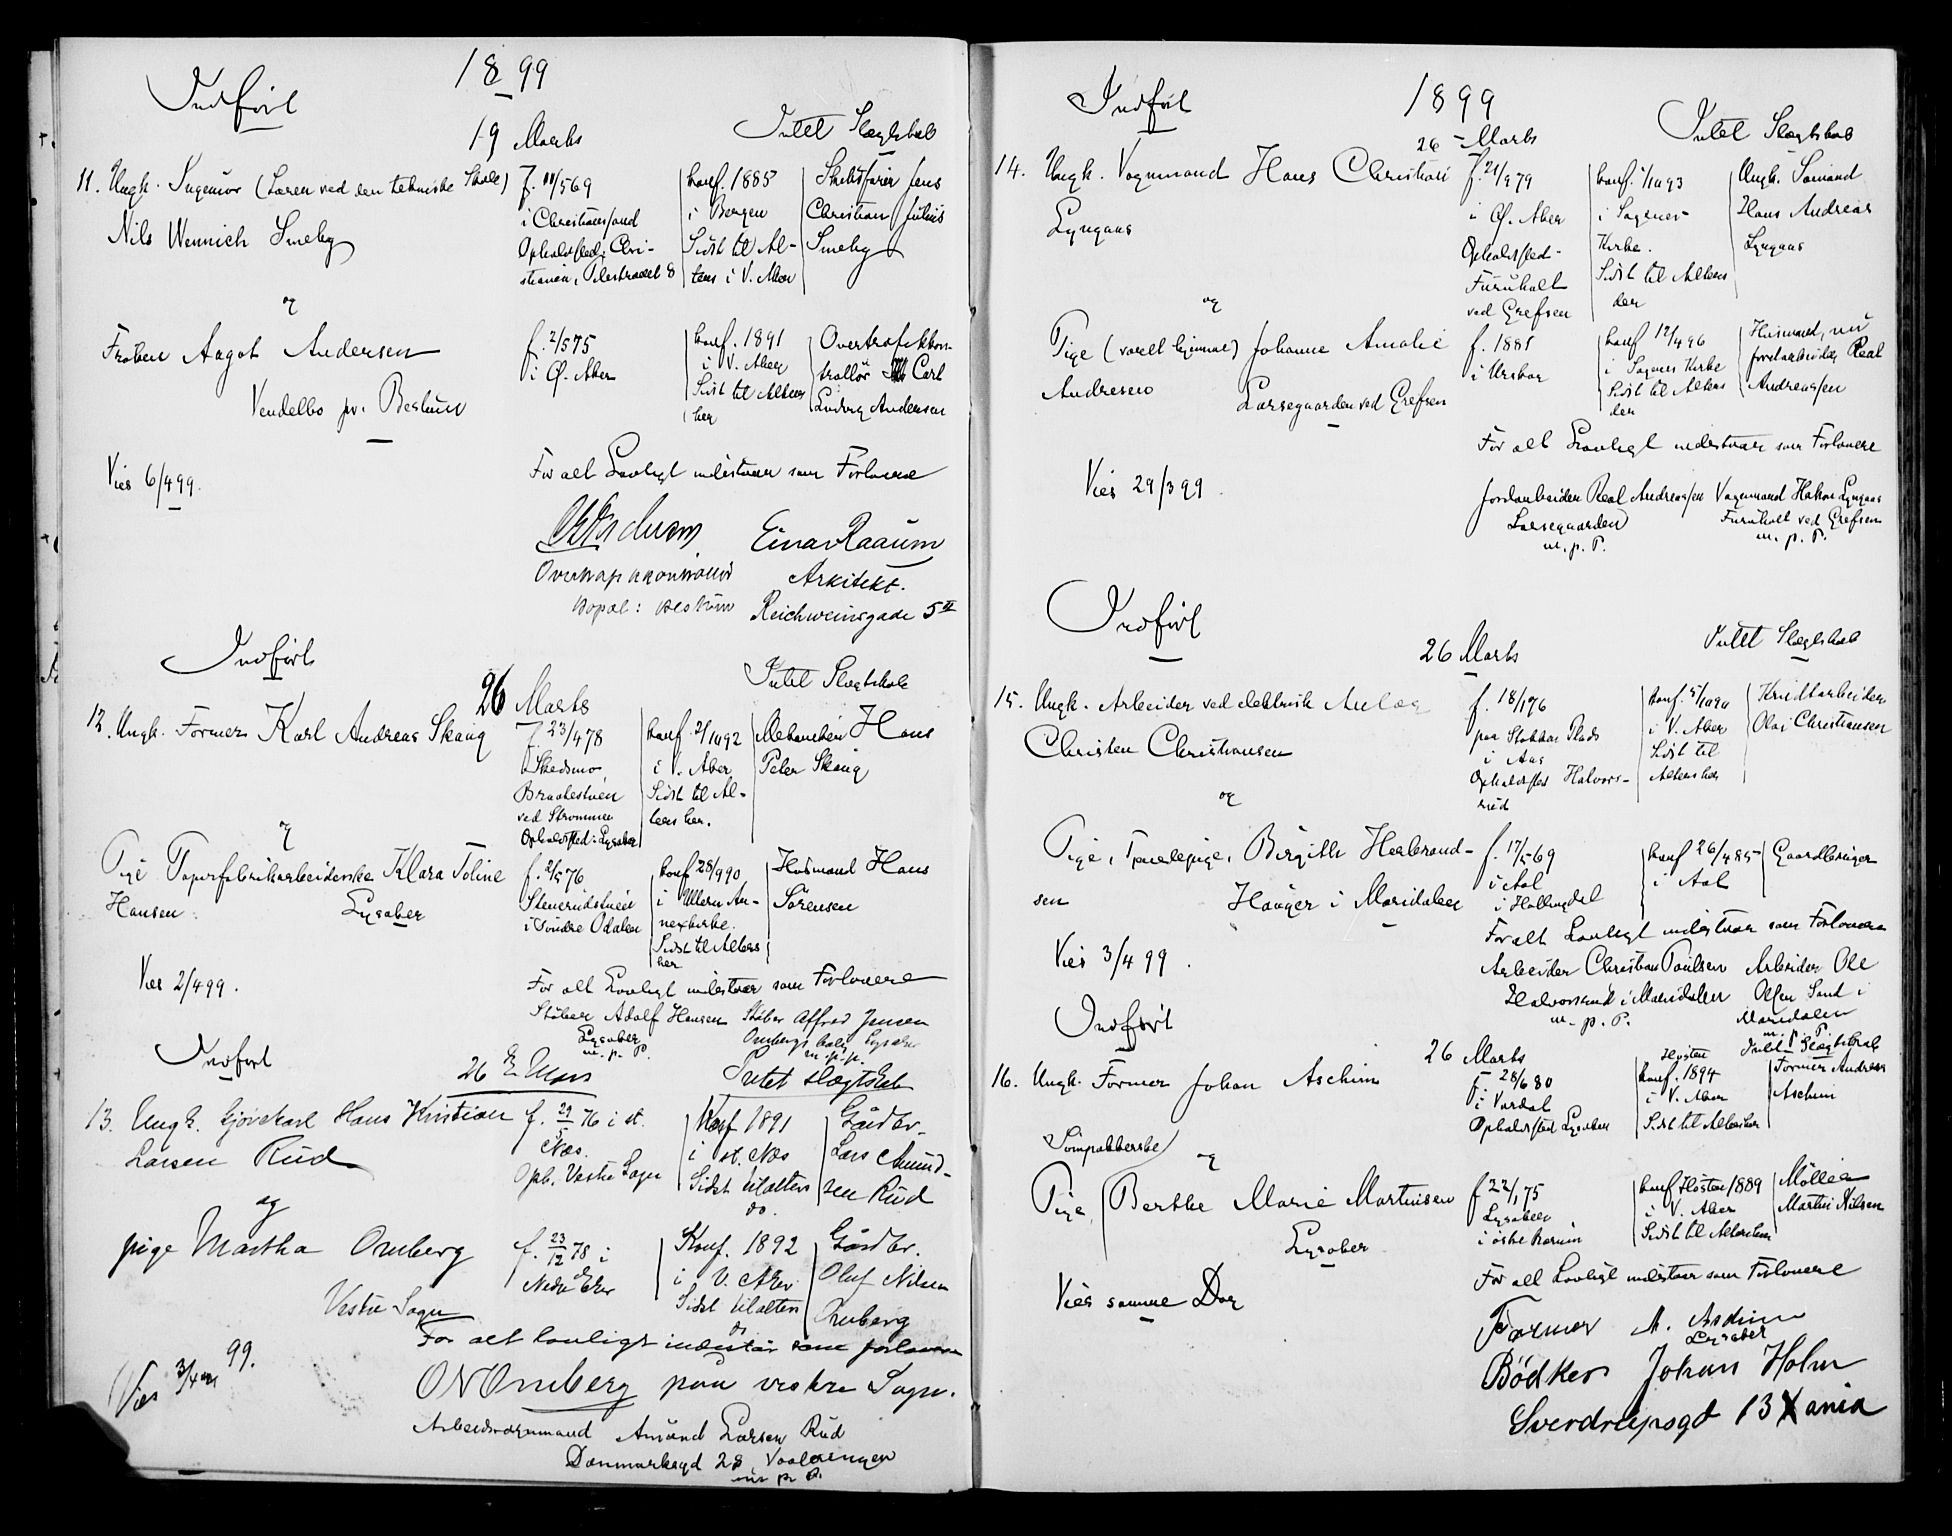 1899
Indført
19 Marts
Intet Slægtskab
11. Ungk. Ingeniør (Lærer ved den tekniske Skole)
Nils Wennich Smeby
f. 11/5 69
i Christiansand
Opholdssted: Chri-
stiania, Pilestrædet 8
konf. 1885
i Bergen
Sidst til Al-
ters i V. Aker
Skibsfører Jens
Christian Julius
Smeby
og
Frøken Aagot Andersen
Vendelbo pr. Bestum
f. 2/5 75
i Ø. Aker
konf. 1891
i V. Aker
Sidst til Alters
her
Overtrafikkon-
trollør Carl
Ludvig Andersen
Vies 6/4 99.
For alt Lovligt indestaar som Forlovere
Einar Raaum
Overtrafikkontrollør
Arkitekt.
Bopæl: Bestum
Reichweinsgade 5 II
Indført
26 Marts
Intet Slægtskab
12. Ungk. Former Karl Andreas Skaug
f. 23/4 78
i Skedsmo
ved Strømmen
Opholdssted: Lysaker
konf. 2/10 92
i V. Aker
Sidst til Al-
ters her.
Hans
Peter Skaug
og
Pige Papirfabrikarbeiderske Klara Toline
Hansen
Lysaker
f. 2/5 76
i Søndre Odalen
konf 28/9 90
i Ullern An-
nexkirke.
Sidst til Alters
her
Husmand Hans
Sørensen
Vies 2/4 99.
For alt Lovligt indestaar som Forlovere
Støber Adolf Hansen Støber Alfred Jensen
Lysaker
m. p. P.
Lysaker
m. p. p.
Indført
26 E Mars
Intet slægtskab
13. Ungk. Gjørtkarl Hans Kristian
Larsen Rud
f. 29/5 76 i st.
Næs.
Oph. Vestre Sogn
Konf 1891
i st. Næs
Sidst til alters
do.
Gårdbr.
Lars Amund-
sen Rud
og
pige Martha Omberg
Vestre Sogn
f. 23/12 78 i
Nedre Eker
Konf. 1892
i V. Aker
Sidst til alters
do
Gårdbr.
Oluf Nilsen
Omberg
For alt lovligt indestår som forlovere
Vies 3/4 99.
O N Omberg paa vestre Sogn.
Arbeidsformand Amund Larsen Rud
Danmarksgd 28 Vaalerengen
m. p. P.
1899
Indført
26 Marts
Intet Slægtskab
14. Ungk. Vognmand Hans Christian
Lyngaas
f. 21/9 79
i Ø. Aker
Opholdssted
Furuholt
ved Grefsen
konf. 1/10 93
i Sagenes
Kirke.
Sidst til Alters
der
Ungk. Sømand
Hans Andreas
Lyngaas
og
Pige (været hjemme) Johanne Amalie
Andresen
Larsegaarden ved Grefsen
f. 1881
i Urskog
konf 12/4 96
i Sagenes Kirke
Sidst til Alters
der
Husmand, nu
jordarbeider Roal
Andreassen
For alt Lovligt indestaar som Forlovere
Vies 29/3 99.
Jordarbeider Roal Andreassen Vognmand Hakon Lyngaas
Larsegaarden
Furuholt ved Grefsen
m. p. P.
m. p. P.
Indført
26 Marts
Intet Slægtskab
15. Ungk. Arbeider ved elektrisk Anlæg
Christen Christiansen
f. 18/1 76
paa Stokkar Plads
i Aas
Opholdssted Halvors-
rud
i V. Aker
Sidst til
Alters her
Kridtarbeider
Olai Christiansen
og
Pige, Tjenestepige, Birgith Herbrand-
sen
Hauger i Maridalen
f. 17/5 69
i Aal
i Hallingdal
konf 26/4 85
i Aal
Gaardbruger
For alt Lovligt indestaar som Forlovere
Vies 3/4 99.
Arbeider Christian Paulsen Arbeider Ole
Halvorsrud i Maridalen Olsen Sand i
m. p. P.
Maridalen
m. p. P.
Indført
26 Marts
Intet Slægtskab
16. Ungk. Former Johan Aschim
f 28/6 80
i Vardal
Opholdssted Lysaker
Høsten
konf. 1894
i V. Aker
Sidst til Alters her
Former Andreas
Aschim
og
Sømpakkerske
Pige, Berthe Marie Martinsen
Lysaker
f 22/1 75
Lysaker
i østre Bærum
konf Høsten 1889
i V. Aker
Sidst til Alters her
Møller
Martin Nilsen
For alt Lovligt indestaar som Forlovere
Vies samme Dag
Former A. Aschim
Lysaker
Bødker Johan Holm
Sverdrupsgt 13 Xania